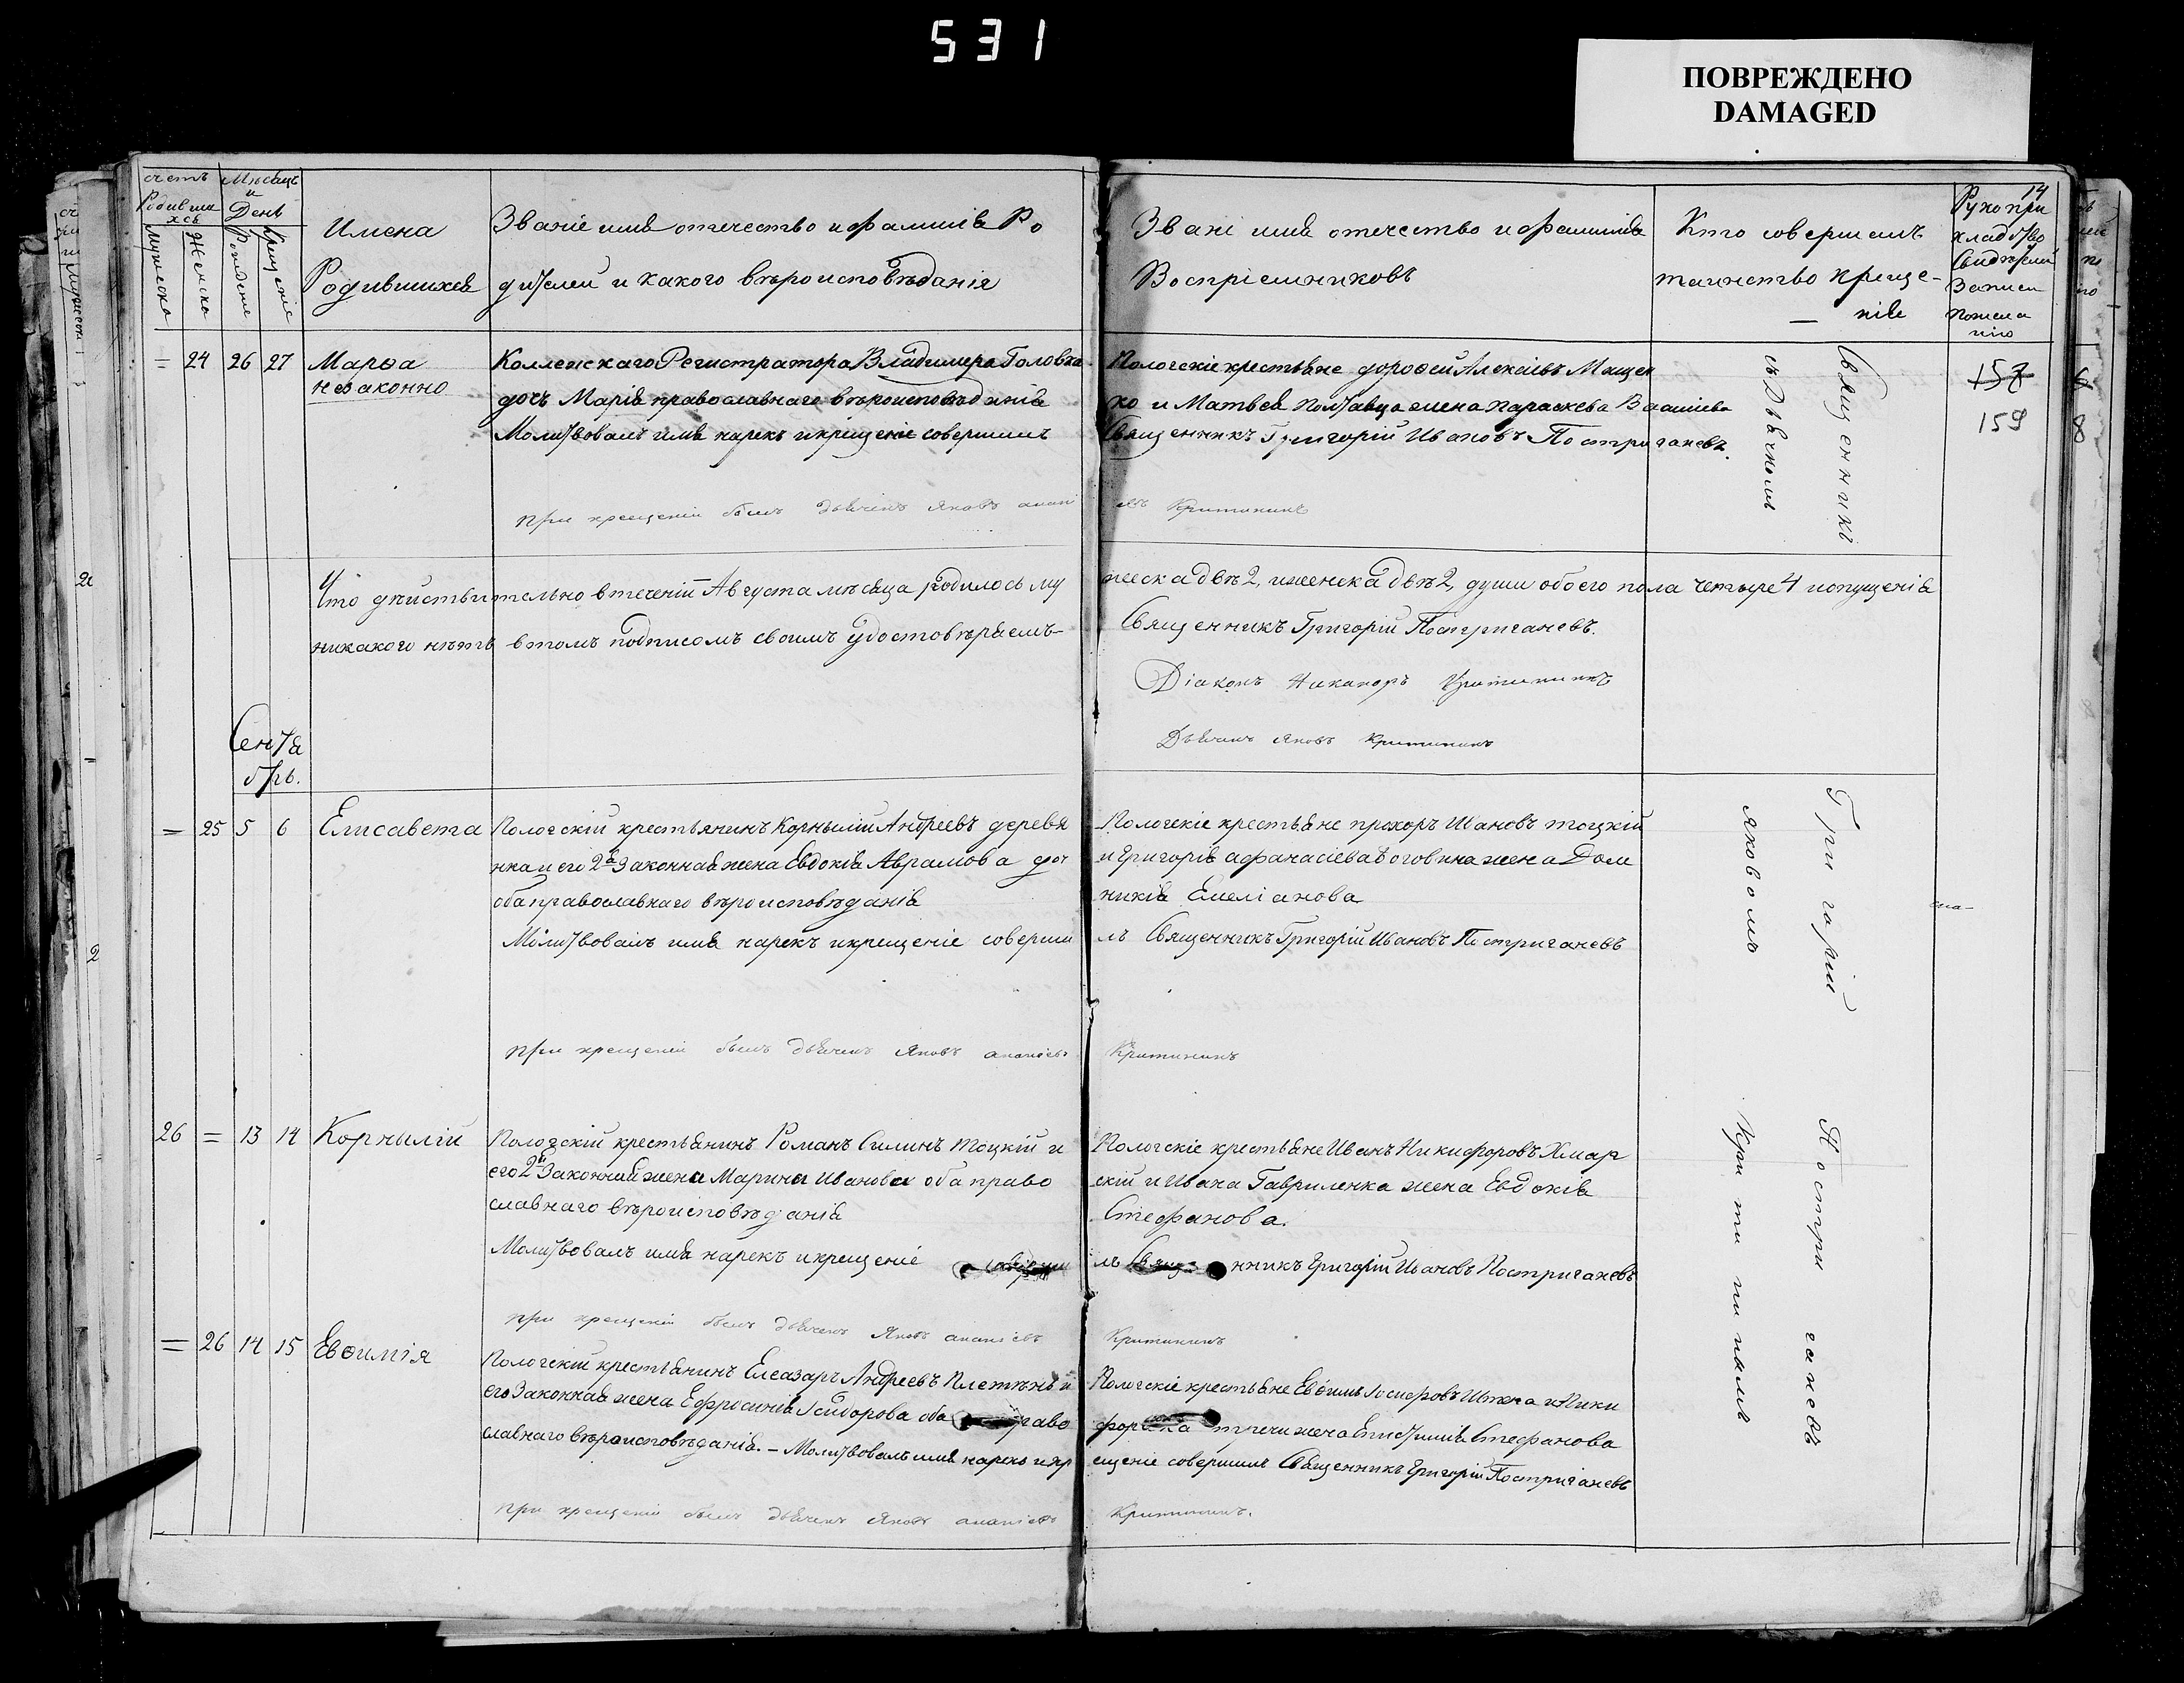 531
ПОВРЕЖДЕНО
DAMAGED
14
счетъ Родившихся
мужеска
Женска
Мѣсяцъ и День
Рожденіе
Крещеніе
Имена
Родившихся
Званіе имя отечество и фамилія Ро
дителей и какого вѣроисповѣданія
Звані имя отечество и фамилія
Воспріемниковъ
Кто совершилъ
таинство креще-
нія
Рукопри
кладство
Свидѣтелей
Записи
Пожела
нію
= 24 26 27 Марѳа
незаконно
Коллежскаго Регистратора Владимера Головка
дочь Марія православнаго вѣроисповѣданія
Молитвовалъ имя нарекъ и крещеніе совершилъ
при крещеніи былъ дьячекъ Яковъ анані
Пологскіе крестьяне дорофей Алексіевъ Мащен
ко и Матвея Полтавца жена параскева Васіліева
Священникъ Григорій Ивановъ Постригачевъ.
евъ Критининъ
157
159
Что дѣйствительно втеченіи Августа мѣсяца родилось му
жеска двѣ 2, и женска двѣ 2, души обоего пола четыре 4 и опущенія
никакого нѣтъ втомъ подписомъ своимъ удостовѣряемъ-
Священникъ Григорій Постригачевъ.
Діаконъ Никаноръ Критининъ
Дьячекъ Яковъ Критининъ
Сентя
брь.
= 25 5 6 Елисавета
Пологскій крестьянинъ Корнылій Андреевъ деревя
нка и его 2я Законная жена Евдокія Аврамова
оба православнаго вѣроисповѣданія
Молитвовалъ имя нарекъ и крещеніе соверши
при крещеніи былъ дьячекъ Яковъ ананіевъ
Пологскіе крестьяне прохоръ Ивановъ тоцкій
и Григорія афанасіева жена Дом
никія Емеліанова
лъ Священникъ Григорій Ивановъ Постригачевъ
Критининъ
26 = 13 14 Корнылій
Пологскій крестьянинъ Романъ Силинъ тоцкій и
его 2я Законная жена Марина Иванова оба право
славнаго вѣроисповѣданія
Молитвовалъ имя нарекъ и крещеніе соверши
при крещеніи былъ дьячекъ Яковъ ананіевъ
Пологскіе крестьяне Иванъ Никифоровъ Хмар
скій и Ивана Гавриленка жена Евдокія
Стефанова.
лъ Священникъ Григорій Ивановъ Постригачевъ
Критининъ
= 26 14 15 Евѳимія
Пологскій крестьянинъ Елеазаръ Андреевъ Плетѣнь и
его Законная жена Ефросинія Ісидорова оба право
славнаго вѣроисповѣданія. – Молитвовалъ имя нарекъ и кр
при крещеніи былъ дьячекъ Яковъ ананіевъ
Пологскіе крестьяне Евфимъ Іосифовъ и Ники
жена Стефанова
ещеніе совершилъ Священникъ Григорій Постригачевъ
Критининъ.
Священникъ
Григорій
Постригачевъ
съ Дьячкомъ
яковомъ
Критининымъ